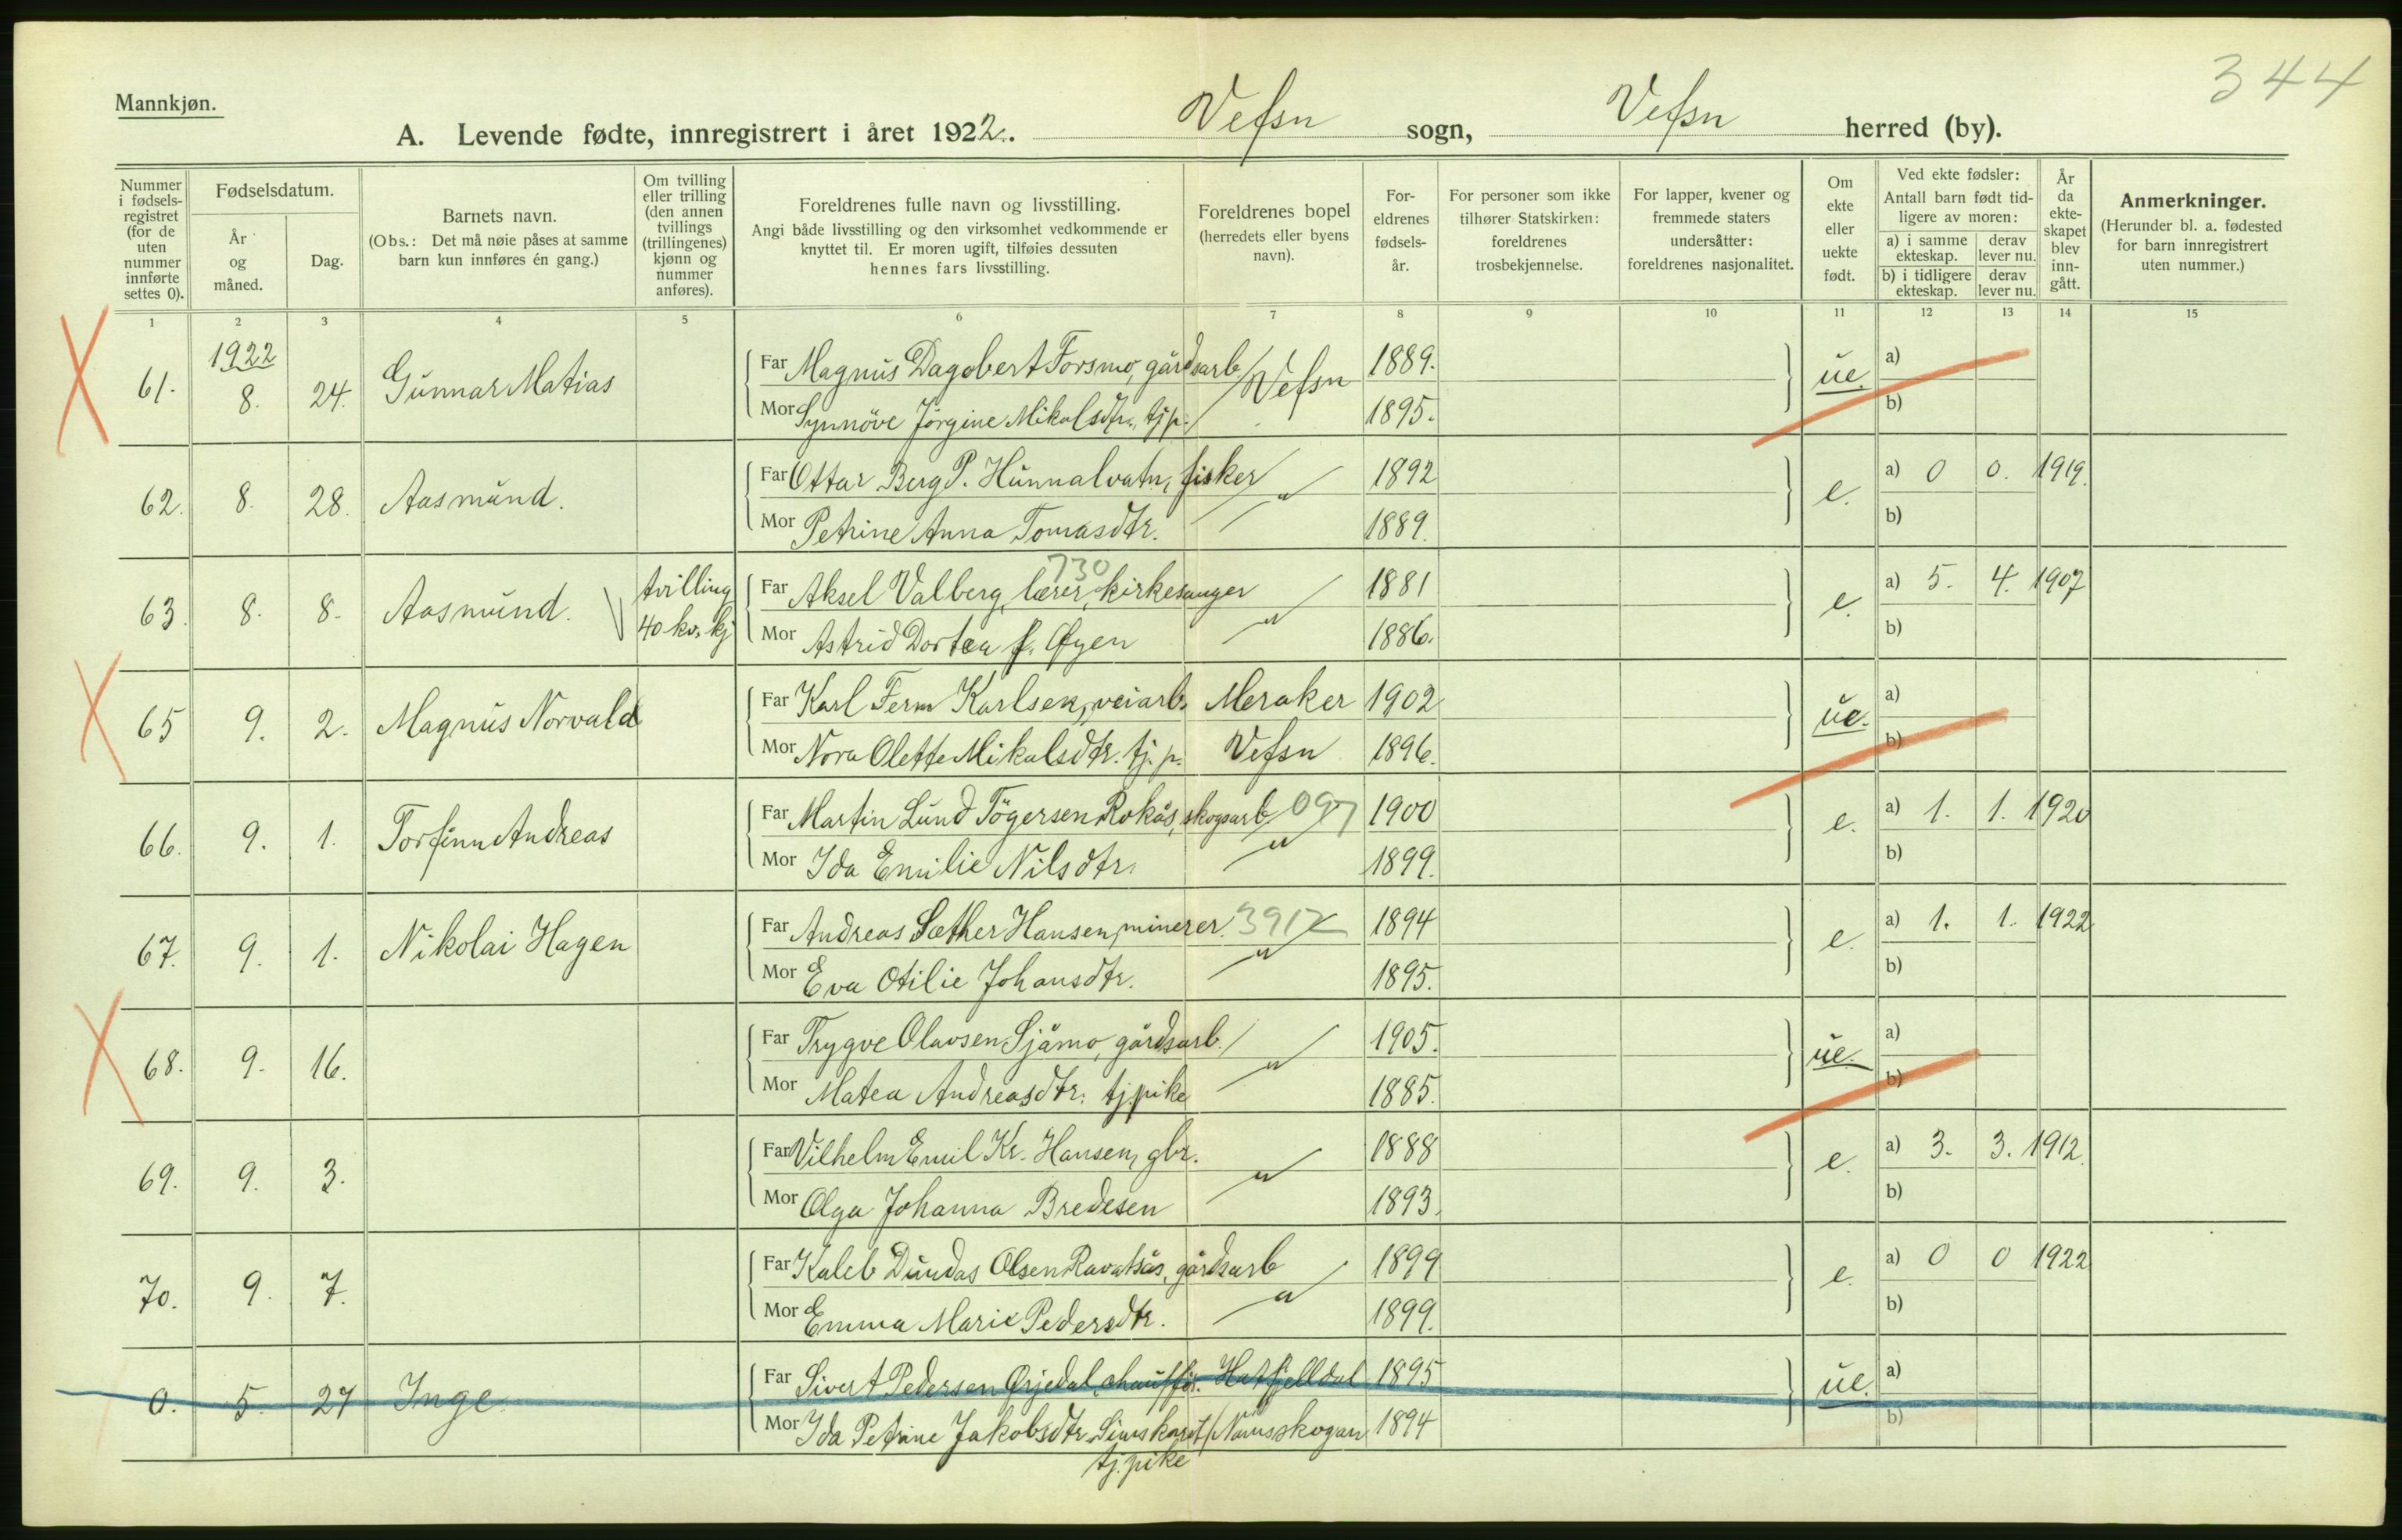 344
Mannkjøn.
A. Levende fødte, innregistrert i året 1922. Vefsn sogn, Vefsn herred (by).
Nummer i fødsels-registret (for de uten nummer innførte settes 0).
Fødselsdatum.
År og måned.
Dag.
Barnets navn.
(Obs.: Det må nøie påses at samme barn kun innføres én gang.)
Om tvilling eller trilling (den annen tvillings (trillingenes) kjønn og nummer anføres).
Foreldrenes fulle navn og livsstilling.
Angi både livsstilling og den virksomhet vedkommende er knyttet til. Er moren ugift, tilføies dessuten hennes fars livsstilling.
Foreldrenes bopel (herredets eller byens navn).
For-eldrenes fødsels-år.
For personer som ikke tilhører Statskirken: foreldrenes trosbekjennelse.
For lapper, kvener og fremmede staters undersåtter: foreldrenes nasjonalitet.
Om ekte eller uekte født.
Ved ekte fødsler: Antall barn født tid-ligere av moren:
a) i samme ekteskap. derav lever nu.
b) i tidligere ekteskap. derav lever nu.
År da ekte-skapet blev inn-gått.
Anmerkninger.
(Herunder bl. a. fødested for barn innregistrert uten nummer.)
1 2 3 4 5 6 7 8 9 10 11 12 13 14 15
1922
61. 8. 24. Gunnar Matias Far Magnus Dagobert Forsmo, gårdsarb. Vefsn 1889. ue. a)
Mor Synnöve Jörgine Mikalsdtr., tj.p. 1895. b)
62. 8. 28. Aasmund. Far Ottar Berg P. Hunnalvatn, fisker 〃 1892 e. a) 0 0. 1919.
Mor Petrine Anna Tomasdtr. 1889. b)
730
63. 8. 8. Aasmund. tvilling 40 kv. kj Far Aksel Valberg, lærer, kirkesanger 〃 1881 e. a) 5. 4. 1907
Mor Astrid Dortea f. Øyen 1886. b)
65 9. 2. Magnus Norvald Far Karl Ferm Karlsen, veiarb. Meraker 1902 ue. a)
Mor Nora Olette Mikalsdtr. tj.p. Vefsn 1896. b)
66. 9. 1. Torfinn Andreas Far Martin Lund Tögersen Rokås, skogsarb. 097 〃 1900 e. a) 1. 1. 1920
Mor Ida Emilie Nilsdtr. 1899. b)
67. 9. 1. Nikolai Hagen Far Andreas Sæther Hansen, minerer. 3912 〃 1894 e. a) 1. 1. 1922
Mor Eva Otilie Johansdtr. 1895. b)
68. 9. 16. Far Trygve Olavsen Sjåmo, gårdsarb. 〃 1905. ue. a)
Mor Matea Andreasdtr. tj.pike 1885. b)
69. 9. 3. Far Vilhelm Emil Kr. Hansen, gbr. 〃 1888 e. a) 3. 3. 1912.
Mor Olga Johanna Bredesen 1893. b)
70. 9. 7. Far Kaleb Dundas Olsen Ravatsås, gårdsarb 〃 1899 e. a) 0 0 1922
Mor Emma Marie Pedersdtr. 1899. b)
0. 5. 27 Inge Far Sivert Pedersen Ørjedal, chauffør. Hatfjelldal 1895 ue. a)
Mor Ida Petrine Jakobsdtr. Simskaret / Namsskogan 1894 b)
tj.pike